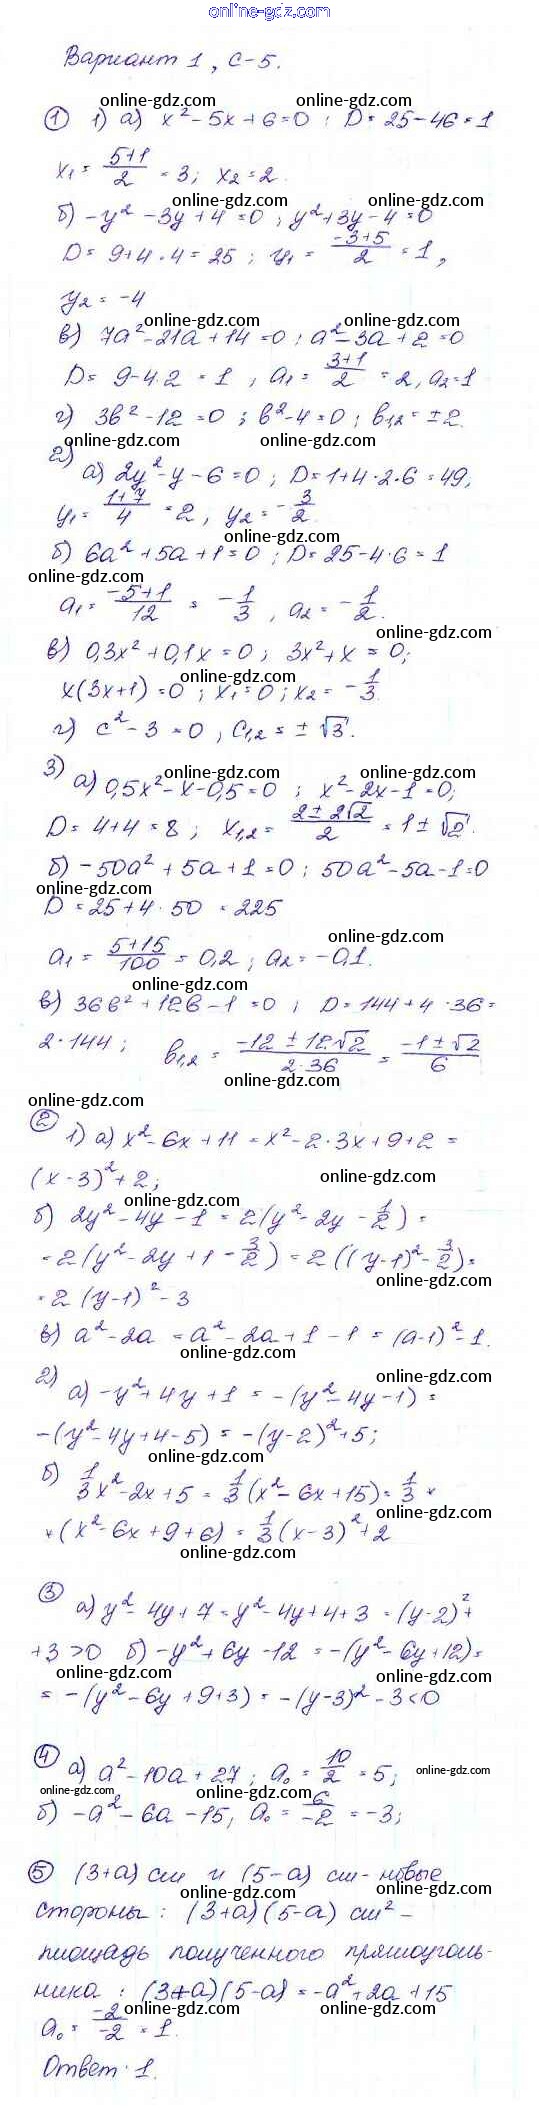 online-gdz.com
Вариант 1, С-5.
online-gdz.com online-gdz.com
① 1) а) x² - 5x + 6 = 0 ; D = 25 - 46 = 1
x₁ = (5+1)/2 = 3; x₂ = 2.
online-gdz.com
б) -y² - 3y + 4 = 0 ; y² + 3y - 4 = 0
D = 9 + 4 · 4 = 25 ; y₁ = (-3+5)/2 = 1,
online-gdz.com
y₂ = -4
online-gdz.com online-gdz.com
в) 7a² - 21a + 14 = 0 ; a² - 3a + 2 = 0
D = 9 - 4·2 = 1 , a₁ = (3+1)/2 = 2, a₂ = 1
г) 3в² - 12 = 0 ; в² - 4 = 0 ; в₁,₂ = ± 2.
online-gdz.com online-gdz.com
2)
а) 2y² - y - 6 = 0 ; D = 1 + 4 · 2 · 6 = 49,
y₁ = (1+7)/4 = 2 , y₂ = - 3/2.
online-gdz.com
б) 6a² + 5a + 1 = 0 ; D = 25 - 4 · 6 = 1
online-gdz.com
a₁ = (-5+1)/12 = - 1/3 , a₂ = - 1/2.
online-gdz.com
в) 0,3x² + 0,1x = 0 ; 3x² + x = 0;
online-gdz.com
x(3x+1) = 0 ; x₁ = 0 ; x₂ = - 1/3.
г) c² - 3 = 0 , c₁,₂ = ± √3.
3) online-gdz.com online-gdz.com
а) 0,5x² - x - 0,5 = 0 ; x² - 2x - 1 = 0;
D = 4 + 4 = 8 ; x₁,₂ = (2 ± 2√2)/2 = 1 ± √2.
б) -50a² + 5a + 1 = 0 ; 50a² - 5a - 1 = 0
online-gdz.com
D = 25 + 4 · 50 = 225
online-gdz.com
a₁ = (5+15)/100 = 0,2 ; a₂ = -0,1.
online-gdz.com
в) 36в² + 12в - 1 = 0 ; D = 144 + 4 · 36 =
2 · 144 ; в₁,₂ = (-12 ± 12√2)/(2·36) = (-1 ± √2)/6
online-gdz.com
online-gdz.com
② 1) а) x² - 6x + 11 = x² - 2 · 3x + 9 + 2 =
online-gdz.com
(x - 3)² + 2;
online-gdz.com
б) 2y² - 4y - 1 = 2(y² - 2y - 1/2) =
= 2(y² - 2y + 1 - 3/2) = 2((y-1)² - 3/2) =
online-gdz.com
= 2 (y-1)² - 3
в) a² - 2a = a² - 2a + 1 - 1 = (a-1)² - 1.
online-gdz.com
2) online-gdz.com
а) -y² + 4y + 1 = -(y² - 4y - 1) =
-(y² - 4y + 4 - 5) = -(y-2)² + 5;
online-gdz.com
б) 1/3 x² - 2x + 5 = 1/3 (x² - 6x + 15) = 1/3 ×
online-gdz.com
× (x² - 6x + 9 + 6) = 1/3 (x - 3)² + 2
online-gdz.com
③ а) y² - 4y + 7 = y² - 4y + 4 + 3 = (y-2)² +
+ 3 > 0 б) -y² + 6y - 12 = -(y² - 6y + 12) =
online-gdz.com online-gdz.com
= -(y² - 6y + 9 + 3) = -(y-3)² - 3 < 0
④ а) a² - 10a + 27 ; a₀ = 10/2 = 5;
online-gdz.com
online-gdz.com online-gdz.com
б) -a² - 6a - 15, a₀ = 6/-2 = -3;
⑤ (3+a) см и (5-a) см - новые
online-gdz.com online-gdz.com
стороны : (3+a)(5-a) см² -
площадь полученного прямоуголь-
ника : (3+a)(5-a) = -a² + 2a + 15
online-gdz.com online-gdz.com
a₀ = -2/-2 = 1.
Ответ · 1.
online-gdz.com online-gdz.com